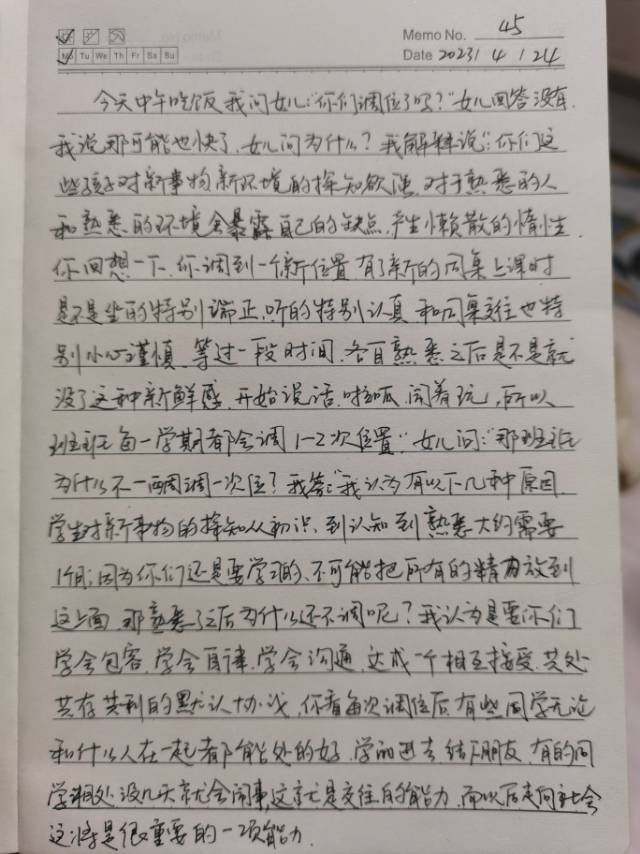 Memo No. 45
Mo Tu We Th Fr Sa Su
Date 2023 / 4 / 24
今天中午吃饭我问女儿:"你们调位了吗?"女儿回答没有.
我说那可能也快了,女儿问为什么?我解释说:"你们这
些孩子对新事物新环境的探知欲强,对于熟悉的人
和熟悉的环境会暴露自己的缺点,产生懒散的惰性.
你回想一下,你调到一个新位置,有了新的同桌上课时
是不是坐的特别端正,听的特别认真,和同桌交往也特
别小心谨慎,等过一段时间,各自熟悉之后是不是就
没了这种新鲜感,开始说话,啦呱,闹着玩,所以
班主任每一学期都会调1-2次位置."女儿问:"那班主任
为什么不一两周调一次位?我答:"我认为有以下几种原因,
学生对新事物的探知从初识,到认知到熟悉大约需要
1个月;因为你们还是要学习的,不可能把所有的精力放到
这上面,那熟悉了之后为什么还不调呢?我认为是要你们
学会包容,学会自律,学会沟通,达成一个相互接受,共处
共存共利的默认协议,你看每次调位后,有些同学无论
和什么人在一起都能处的好,学习进去结下朋友,有的同
学相处没几天就会闹事,这就是交往的能力,而以后走向社会
这将是很重要的一项能力.